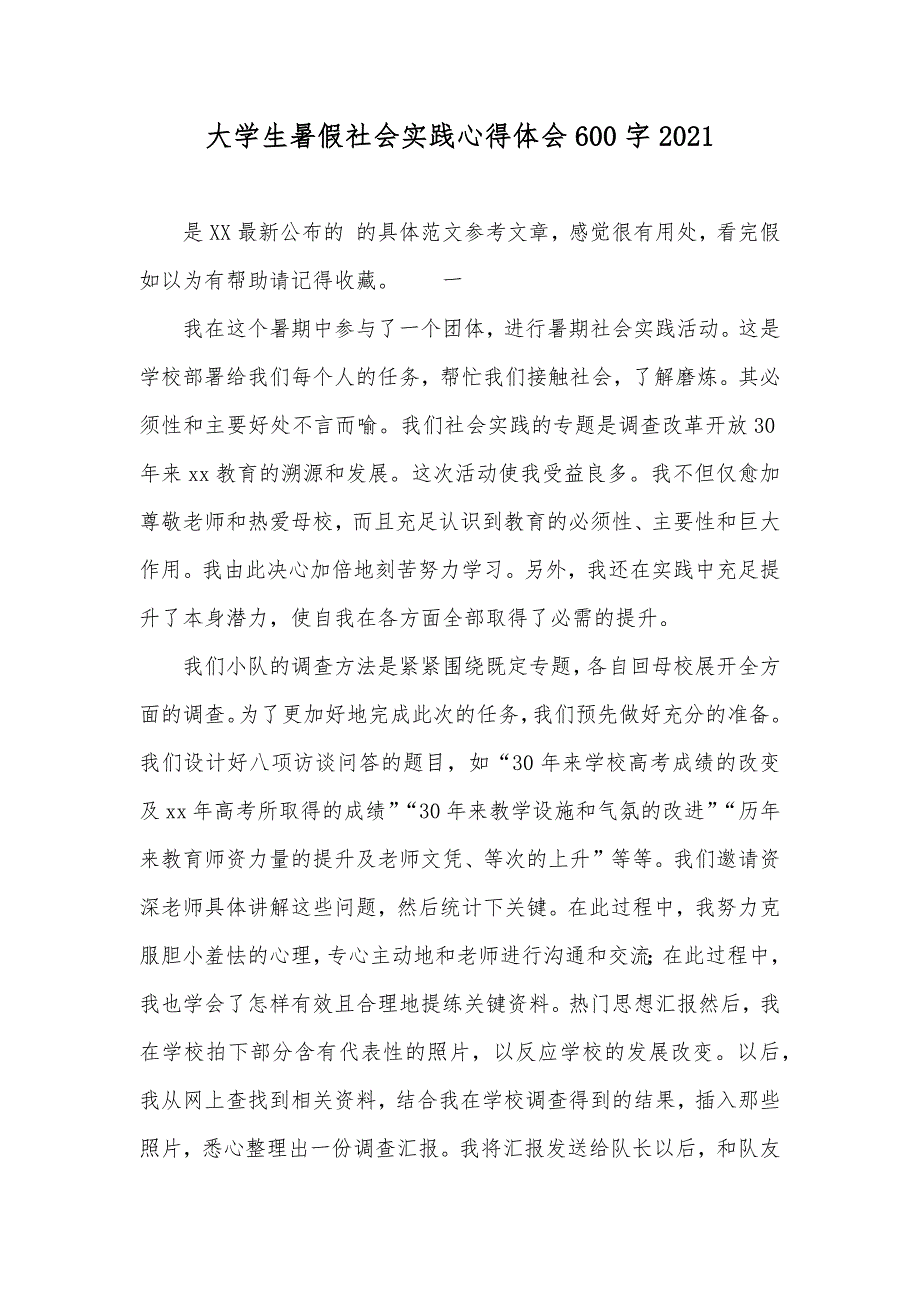 大学生暑假社会实践心得体会600字2021
是XX最新公布的 的具体范文参考文章，感觉很有用处，看完假
如以为有帮助请记得收藏。 一
我在这个暑期中参与了一个团体，进行暑期社会实践活动。这是
学校部署给我们每个人的任务，帮忙我们接触社会，了解磨炼。其必
须性和主要好处不言而喻。我们社会实践的专题是调查改革开放30
年来xx教育的溯源和发展。这次活动使我受益良多。我不但仅愈加
尊敬老师和热爱母校，而且充足认识到教育的必须性、主要性和巨大
作用。我由此决心加倍地刻苦努力学习。另外，我还在实践中充足提
升了本身潜力，使自我在各方面全部取得了必需的提升。
我们小队的调查方法是紧紧围绕既定专题，各自回母校展开全方
面的调查。为了更加好地完成此次的任务，我们预先做好充分的准备。
我们设计好八项访谈问答的题目，如“30年来学校高考成绩的改变
及xx年高考所取得的成绩”“30年来教学设施和气氛的改进”“历年
来教育师资力量的提升及老师文凭、等次的上升”等等。我们邀请资
深老师具体讲解这些问题，然后统计下关键。在此过程中，我努力克
服胆小羞怯的心理，专心主动地和老师进行沟通和交流；在此过程中，
我也学会了怎样有效且合理地提练关键资料。热门思想汇报然后，我
在学校拍下部分含有代表性的照片，以反应学校的发展改变。以后，
我从网上查找到相关资料，结合我在学校调查得到的结果，插入那些
照片，悉心整理出一份调查汇报。我将汇报发送给队长以后，和队友